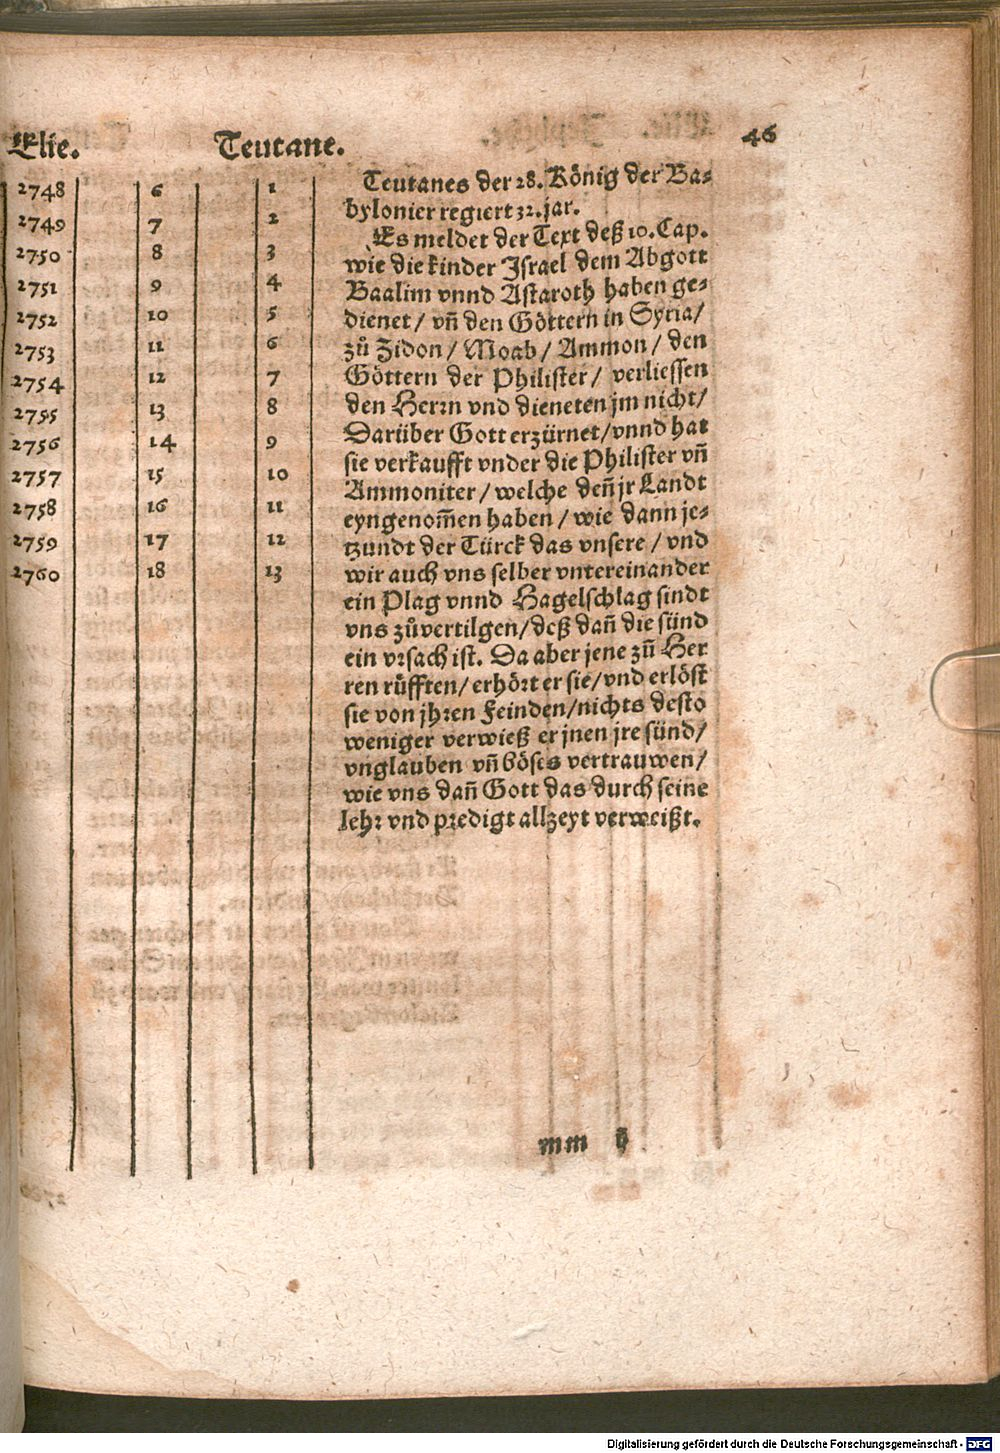 Elie. Teutane. 46
2748 6 1
2749 7 2
2750 8 3
2751 9 4
2752 10 5
2753 11 6
2754 12 7
2755 13 8
2756 14 9
2757 15 10
2758 16 11
2759 17 12
2760 18 13
Teutanes der 28. König der Ba⸗
bylonier regiert 32. jar.
Es meldet der Text deß 10. Cap.
wie die kinder Israel dem Abgott
Baalim vnnd Astaroth haben ge⸗
dienet / vñ den Göttern in Syria /
zů Zidon / Moab / Ammon / den
Göttern der Philister / verliessen
den Herrn vnd dieneten jm nicht /
Darüber Gott erzürnet / vnnd hat
sie verkaufft vnder die Philister vñ
Ammoniter / welche deñ jr Landt
eyngenom̃en haben / wie dann je⸗
tzundt der Türck das vnsere / vnd
wir auch vns selber vntereinander
ein Plag vnnd Hagelschlag sindt
vns zůvertilgen / deß dañ die sünd
ein vrsach ist. Da aber jene zů Her
ren růfften / erhört er sie / vnd erlöst
sie von jhren Feinden / nichts desto
weniger verwieß er jnen jre sünd /
vnglauben vñ böses vertrauwen /
wie vns dañ Gott das durch seine
lehr vnd predigt allzeyt verweißt.
mm ij
Digitalisierung gefördert durch die Deutsche Forschungsgemeinschaft - DFG